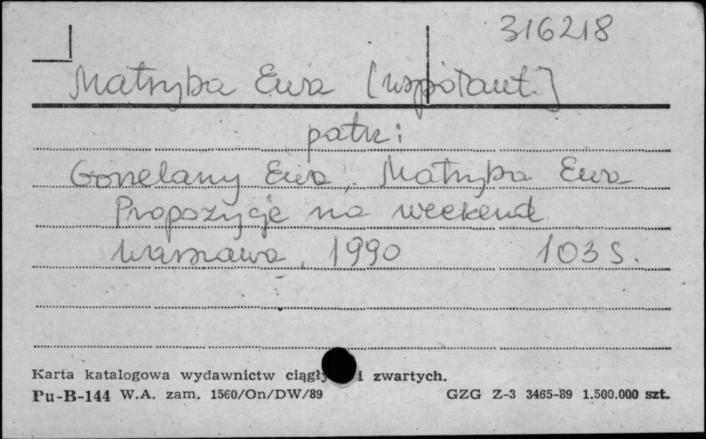 316218
Matryba Ewa [współaut.]
patrz:
Gonelany Ewa, Matryba Ewa
Propozycje na weekend
Warszawa, 1990 103 s.
Karta katalogowa wydawnictw ciągły i zwartych.
Pu-B-144 W.A. zam. 1560/On/DW/89 GZG Z-3 3465-89 1.500.000 szt.